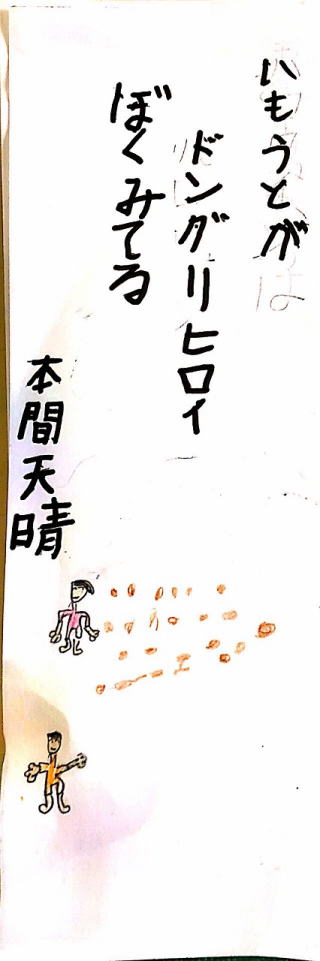 いもうとが
ドングリヒロイ
ぼくみてる
本間天晴